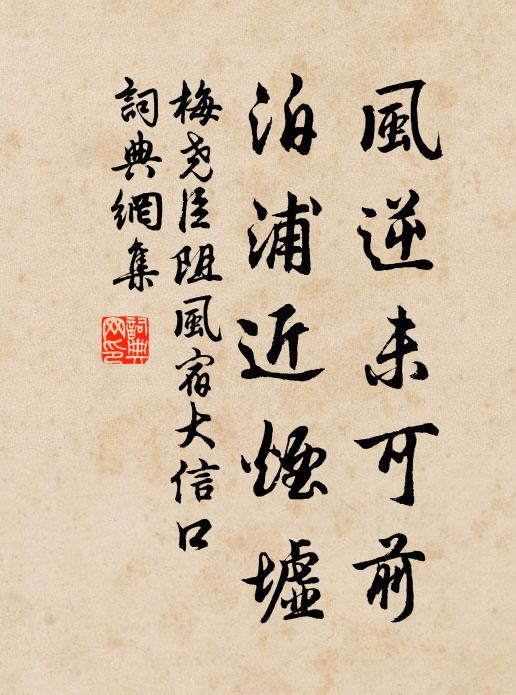 風逆未可前
泊浦近煙墟
梅尧臣阻風宿大信口
詞典網集
詞典
网印